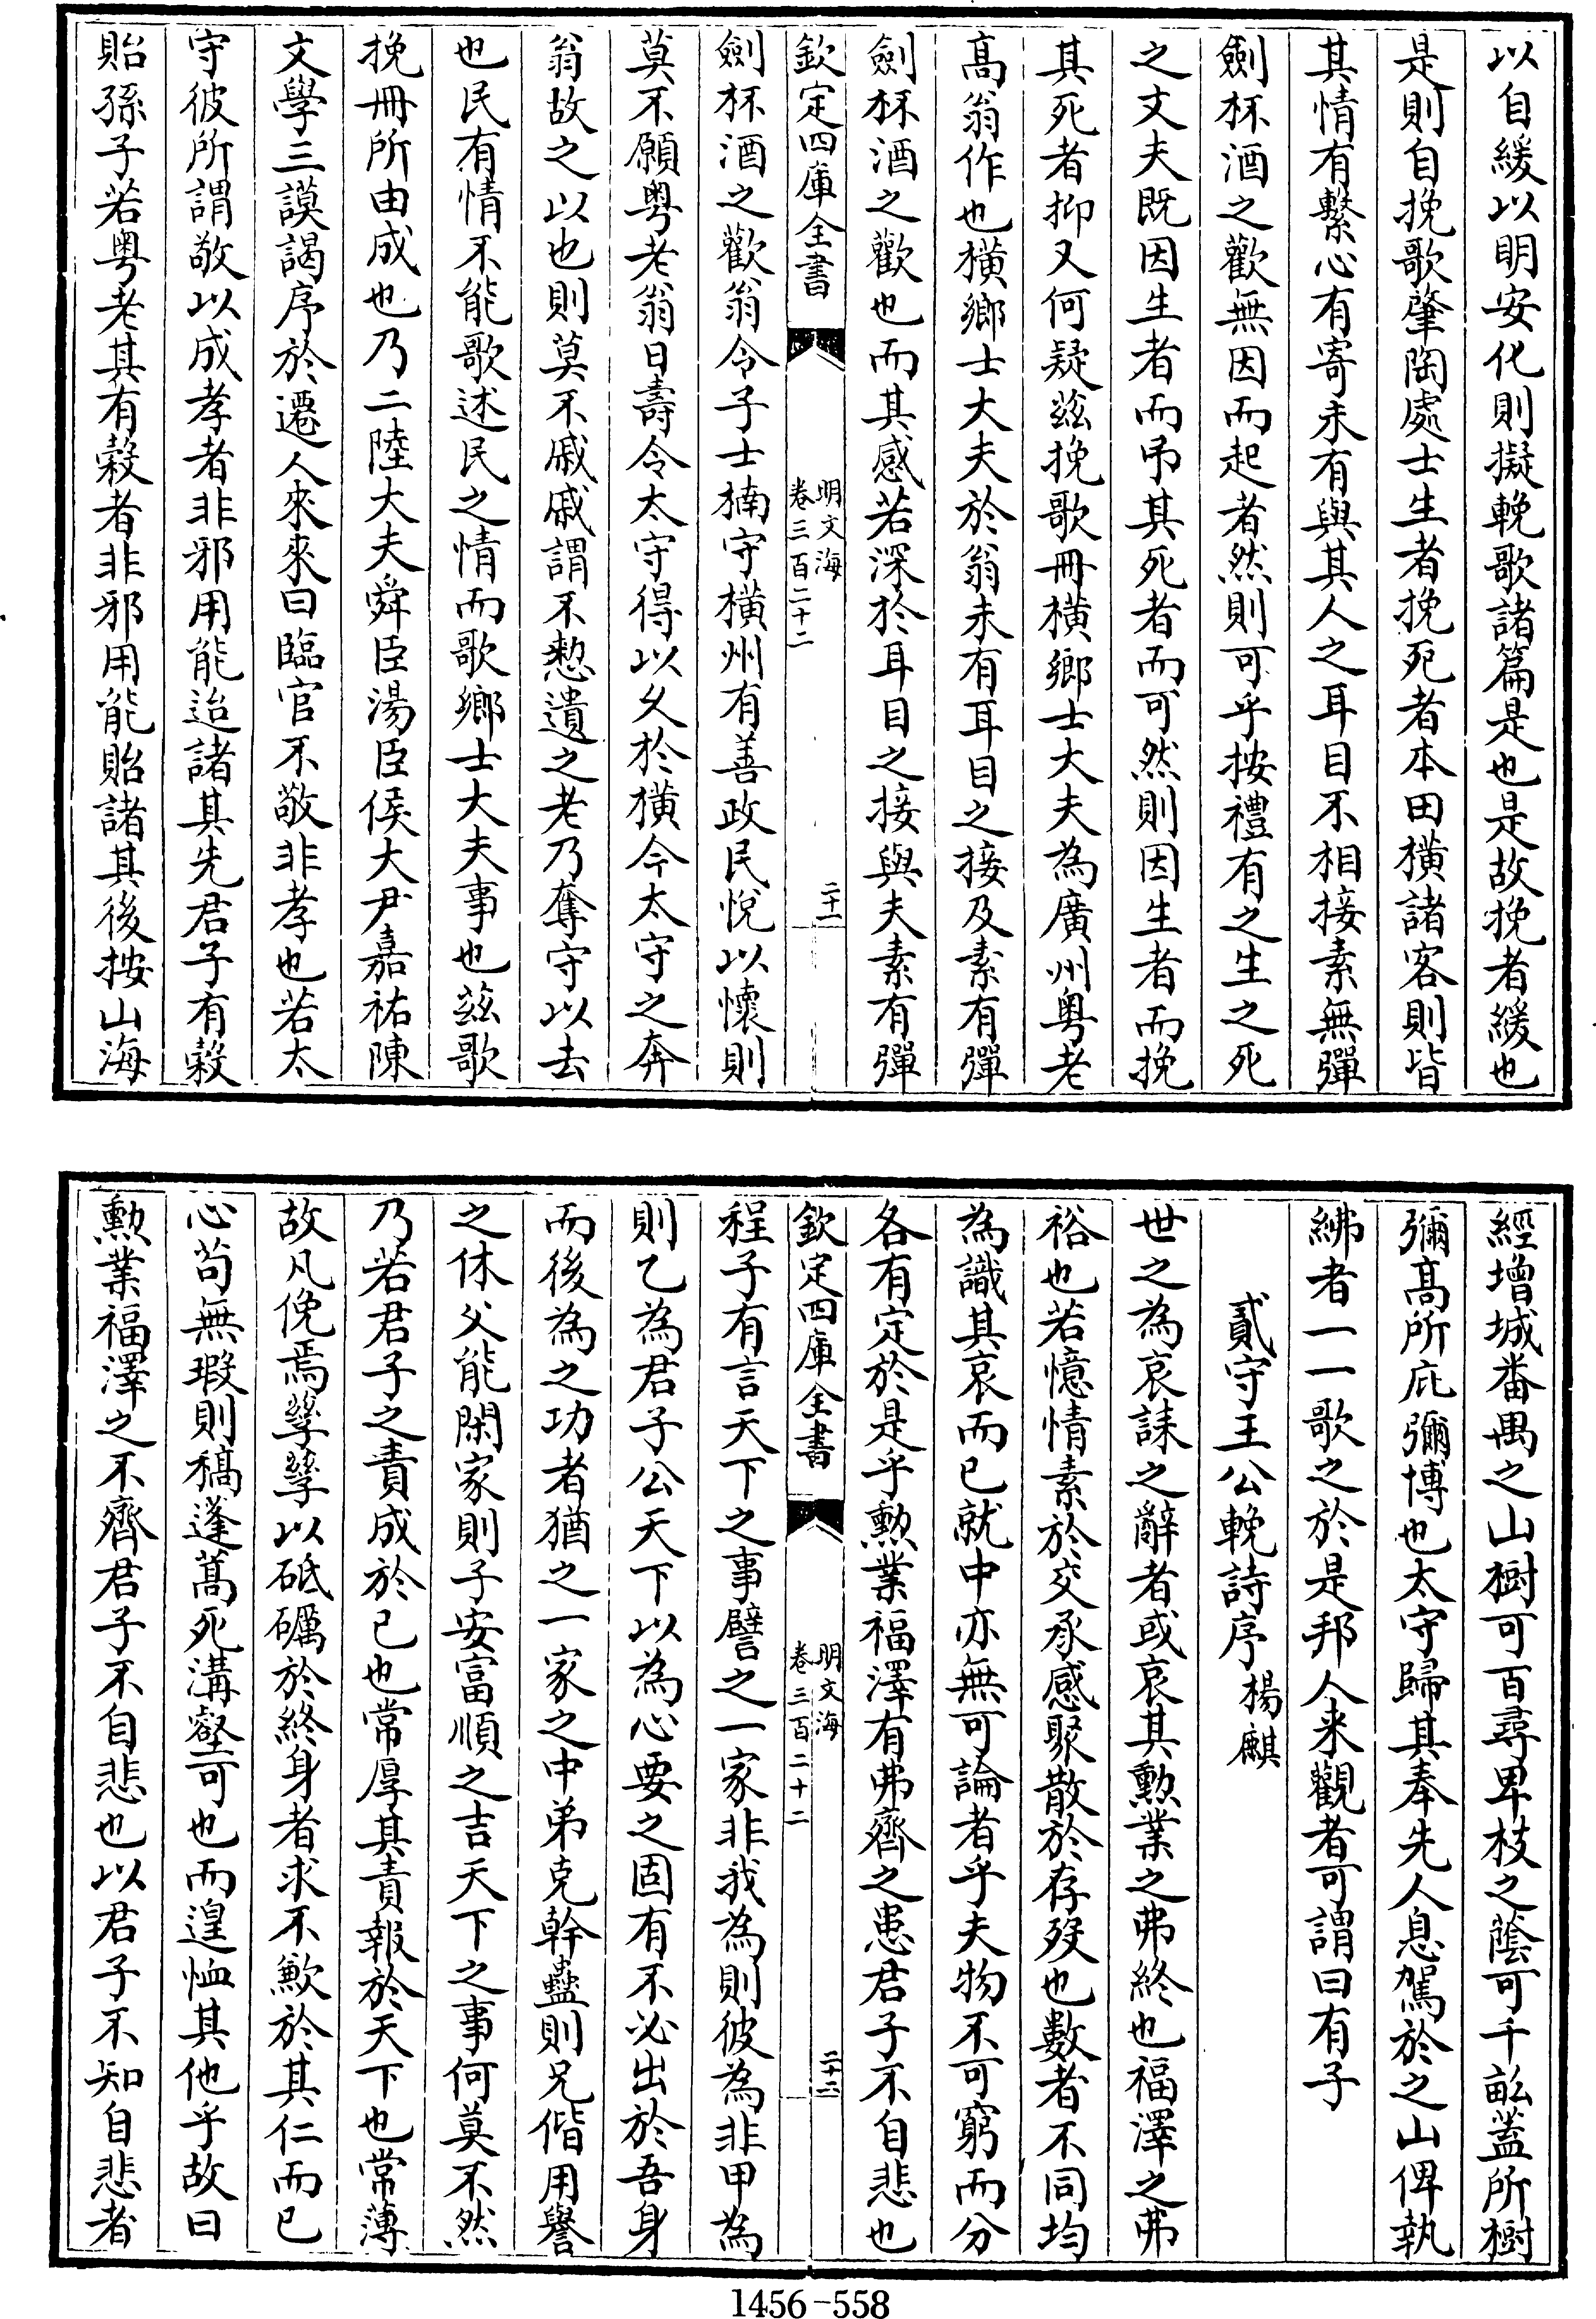 以自緩以明安化則擬輓歌諸篇是也是故挽者緩也
是則自挽歌肇陶處士生者挽死者本田横諸客則皆
其情有繫心有寄未有與其人之耳目不相接素無彈
劍杯酒之歡無因而起者然則可乎按禮有之生之死
之丈夫既因生者而弔其死者而可然則因生者而挽
其死者抑又何疑兹挽歌冊横鄉士大夫為廣州粤老
髙翁作也横鄉士大夫於翁未有耳目之接及素有彈
劍杯酒之歡也而其感若深於耳目之接與夫素有彈
欽定四庫全書
明文海
卷三百二十二
二十一
劍杯酒之歡翁令子士楠守横州有善政民悅以懷則
莫不願粤老翁日壽令太守得以久於横今太守之奔
翁故之以也則莫不戚戚謂不憖遺之老乃奪守以去
也民有情不能歌述民之情而歌鄉士大夫事也兹歌
挽冊所由成也乃二陸大夫舜臣湯臣侯大尹嘉祐陳
文學三謨謁序於遷人來來曰臨官不敬非孝也若太
守彼所謂敬以成孝者非邪用能迨諸其先君子有穀
貽孫子若粤老其有穀者非邪用能貽諸其後按山海
經增城番禺之山樹可百尋卑枝之蔭可千畝葢所樹
彌髙所庇彌博也太守歸其奉先人息駕於之山俾執
紼者一一歌之於是邦人来觀者可謂曰有子
貳守王公輓詩序 楊麒
世之為哀誄之辭者或哀其勲業之弗終也福澤之弗
裕也若憶情素於交承感聚散於存歿也數者不同均
為識其哀而已就中亦無可論者乎夫物不可窮而分
各有定於是乎勲業福澤有弗齊之患君子不自悲也
欽定四庫全書
明文海
卷三百二十二
二十二
程子有言天下之事譬之一家非我為則彼為非甲為
則乙為君子公天下以為心要之固有不必出於吾身
而後為之功者猶之一家之中弟克幹蠱則兄偕用譽
之休父能閑家則子安富順之吉天下之事何莫不然
乃若君子之責成於已也常厚其責報於天下也常薄
故凡俛焉孳孳以砥礪於終身者求不歉於其仁而已
心苟無瑕則稿蓬蒿死溝壑可也而遑恤其他乎故曰
勲業福澤之不齊君子不自悲也以君子不知自悲者
1456-558